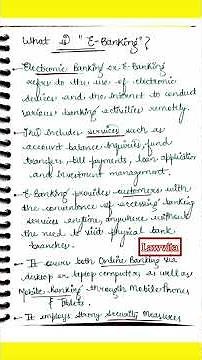 What is "E-Banking"?
→ Electronic Banking or E-Banking
refers to the use of electronic
devices and the internet to conduct
various banking activities remotely.
→ This includes services such as
account balance inquiries, fund
transfers, bill payments, loan application
and investment management.
→ E-Banking provides customers with
the convenience of accessing banking
services anytime, anywhere without
the need to visit physical bank
branches.
Lawvita
→ It covers both Online Banking via
desktop or laptop computers, as well as
Mobile Banking through Mobile Phones
& Tablets.
→ It employs strong Security Measures